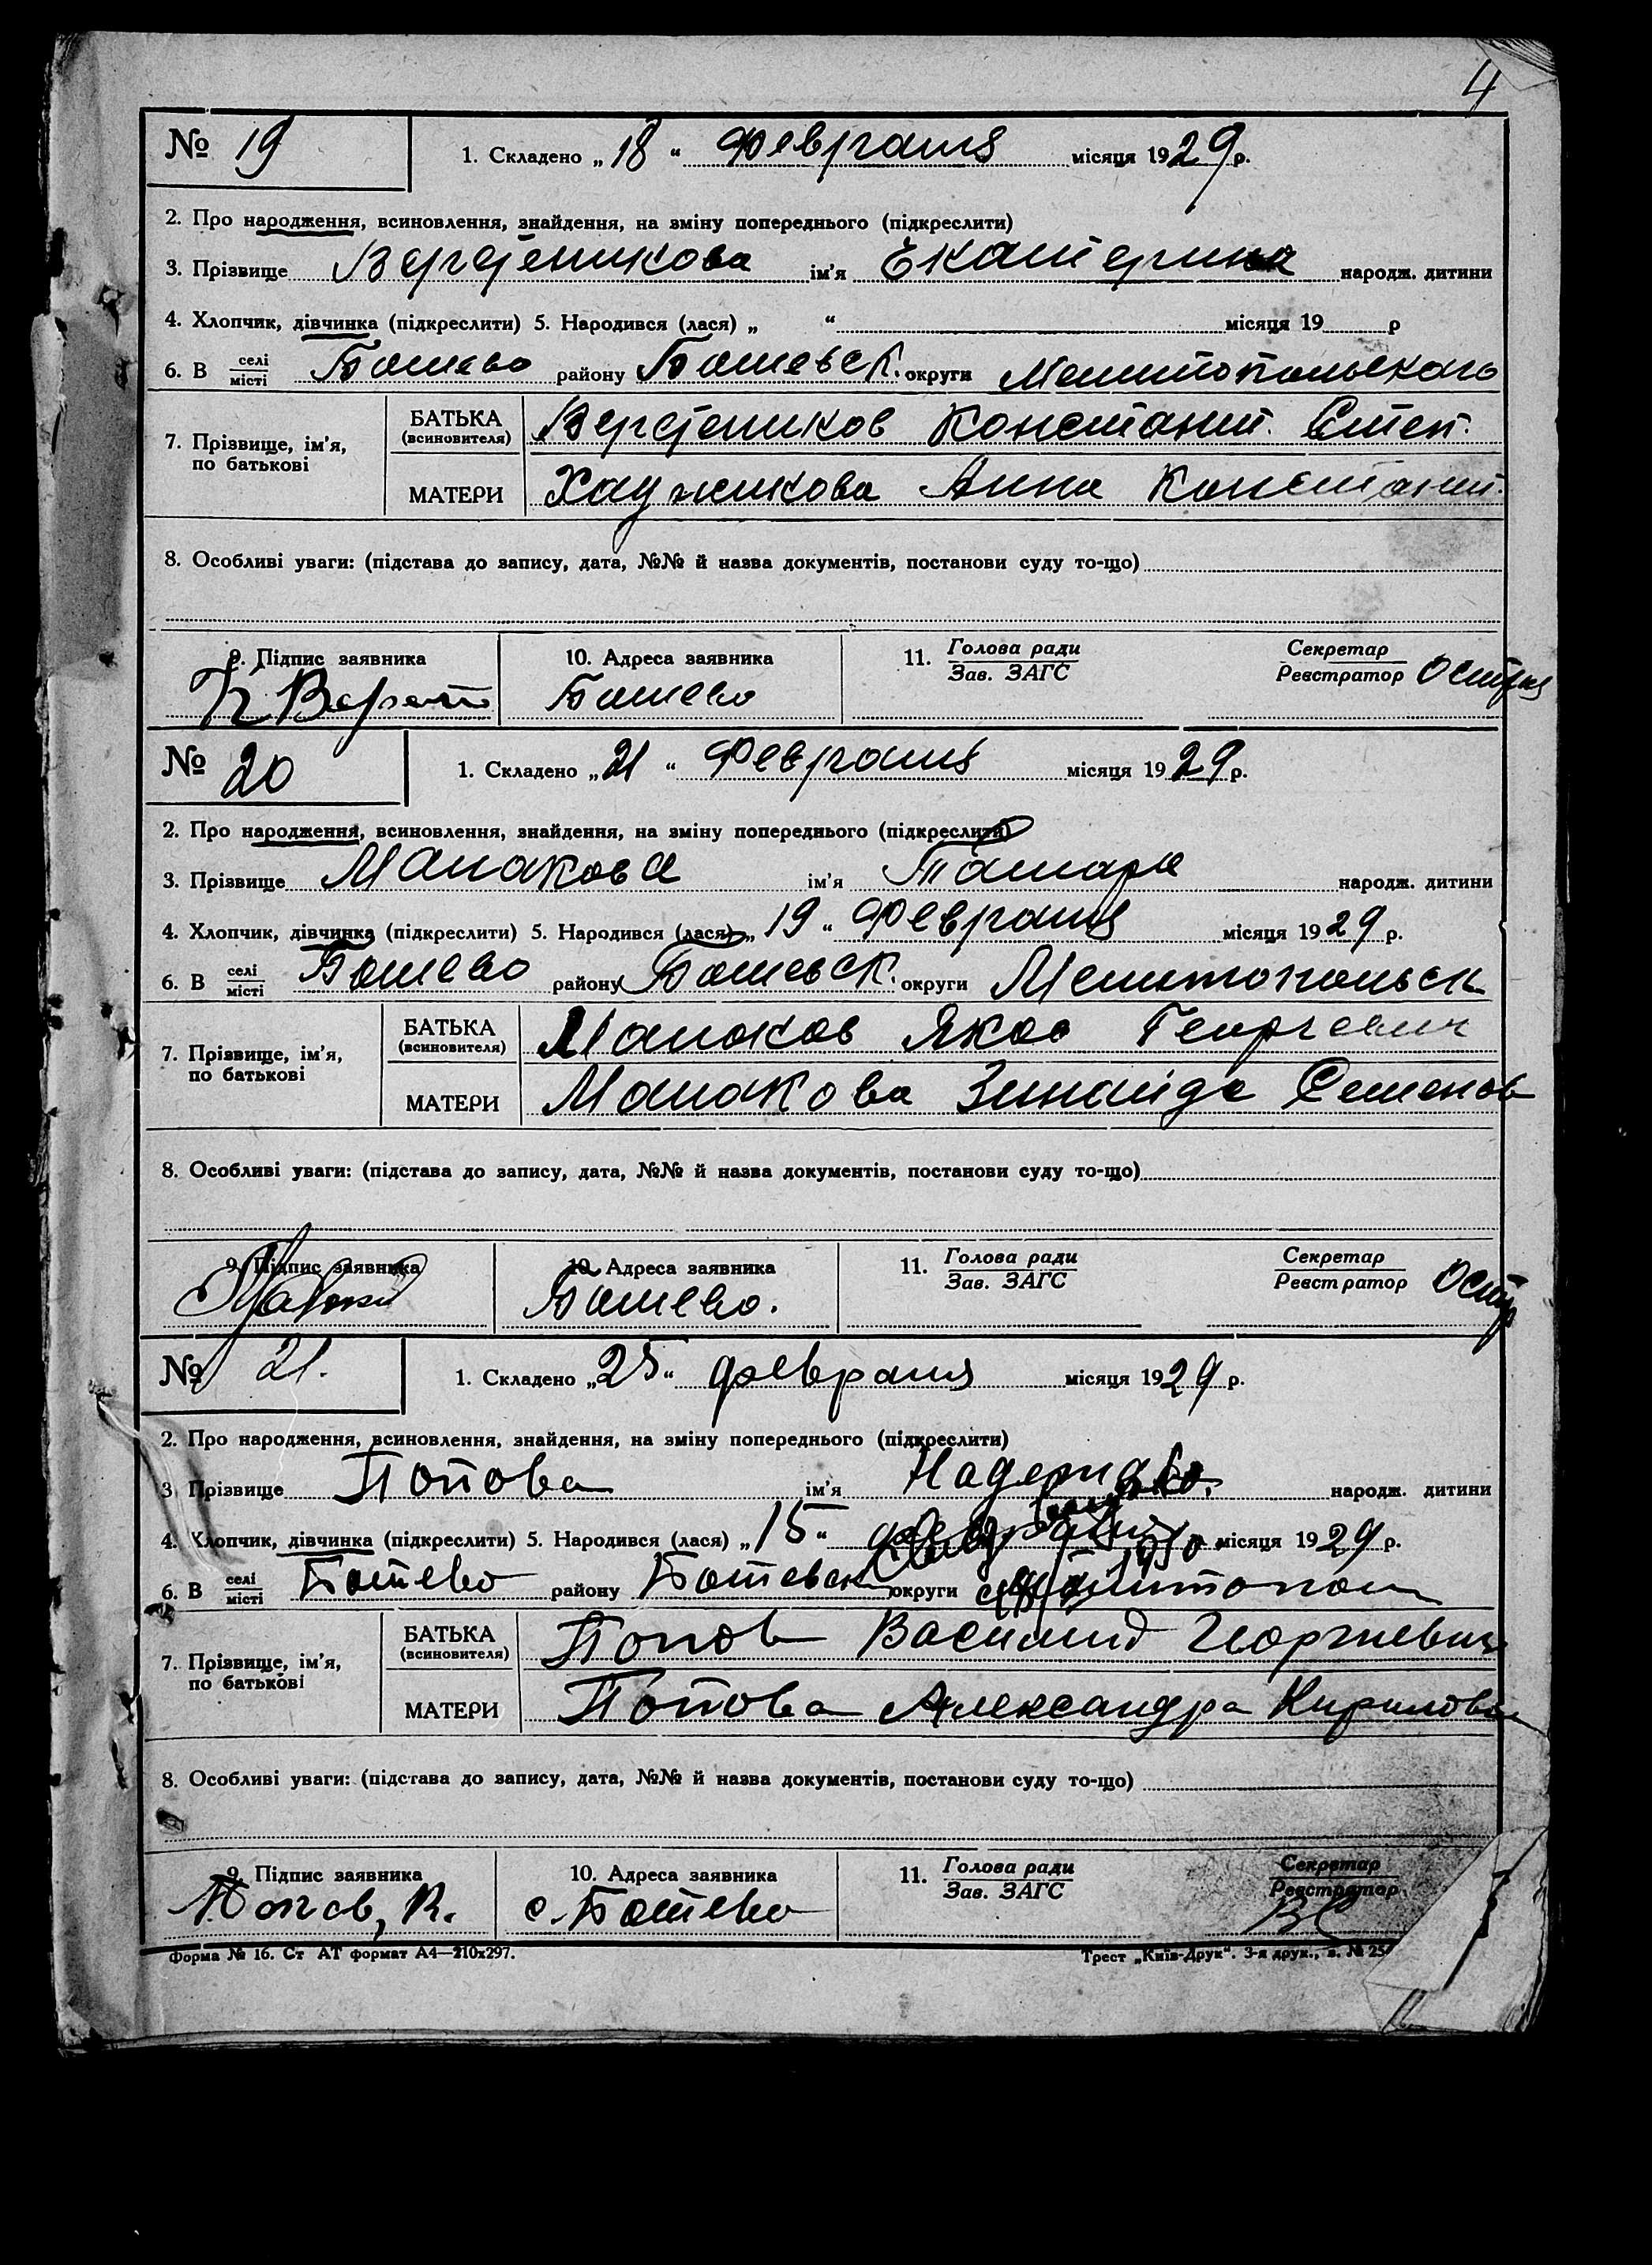 4
№ 19 1. Складено „18“ февраля місяця 1929 р.
2. Про народження, всиновлення, знайдення, на зміну попереднього (підкреслити)
3. Прізвище ім'я Екатерина народж. дитини
4. Хлопчик, дівчинка (підкреслити) 5. Народився (лася) „ “ місяця 19 р
6. В селі/місті Ботево району Ботевск. округи Мелитопольского
7. Прізвище, ім'я, по батькові БАТЬКА (всиновителя) Константин. Степ.
МАТЕРИ Анна Константин.
8. Особливі уваги: (підстава до запису, дата, №№ й назва документів, постанови суду то-що)
9. Підпис заявника 10. Адреса заявника 11. Голова ради Зав. ЗАГС Секретар Реєстратор
Ботево
№ 20 1. Складено „21“ февраля місяця 1929 р.
2. Про народження, всиновлення, знайдення, на зміну попереднього (підкреслити)
3. Прізвище Манакова ім'я Тамара народж. дитини
4. Хлопчик, дівчинка (підкреслити) 5. Народився (лася) „19“ февраля місяця 1929 р.
6. В селі/місті Ботево району Ботевск. округи Мелитопольск
7. Прізвище, ім'я, по батькові БАТЬКА (всиновителя) Манаков Яков Георгевич
МАТЕРИ Манакова Зинаида Семенов
8. Особливі уваги: (підстава до запису, дата, №№ й назва документів, постанови суду то-що)
9. Підпис заявника 10. Адреса заявника 11. Голова ради Зав. ЗАГС Секретар Реєстратор
Ботево.
№ 21. 1. Складено „25“ февраля місяця 1929 р.
2. Про народження, всиновлення, знайдення, на зміну попереднього (підкреслити)
3. Прізвище Попова ім'я народж. дитини
4. Хлопчик, дівчинка (підкреслити) 5. Народився (лася) „15“ февраля місяця 1929 р.
6. В селі/місті Ботево району Ботевск округи
7. Прізвище, ім'я, по батькові БАТЬКА (всиновителя) Попов Василий Георгиевич
МАТЕРИ Попова Александра Кириловна
8. Особливі уваги: (підстава до запису, дата, №№ й назва документів, постанови суду то-що)
9. Підпис заявника 10. Адреса заявника 11. Голова ради Зав. ЗАГС Секретар Реєстратор
Попов, В. с. Ботево
Форма № 16. Ст АТ формат А4—210х297. Трест „Київ-Друк“. 3-я друк., з. № 25